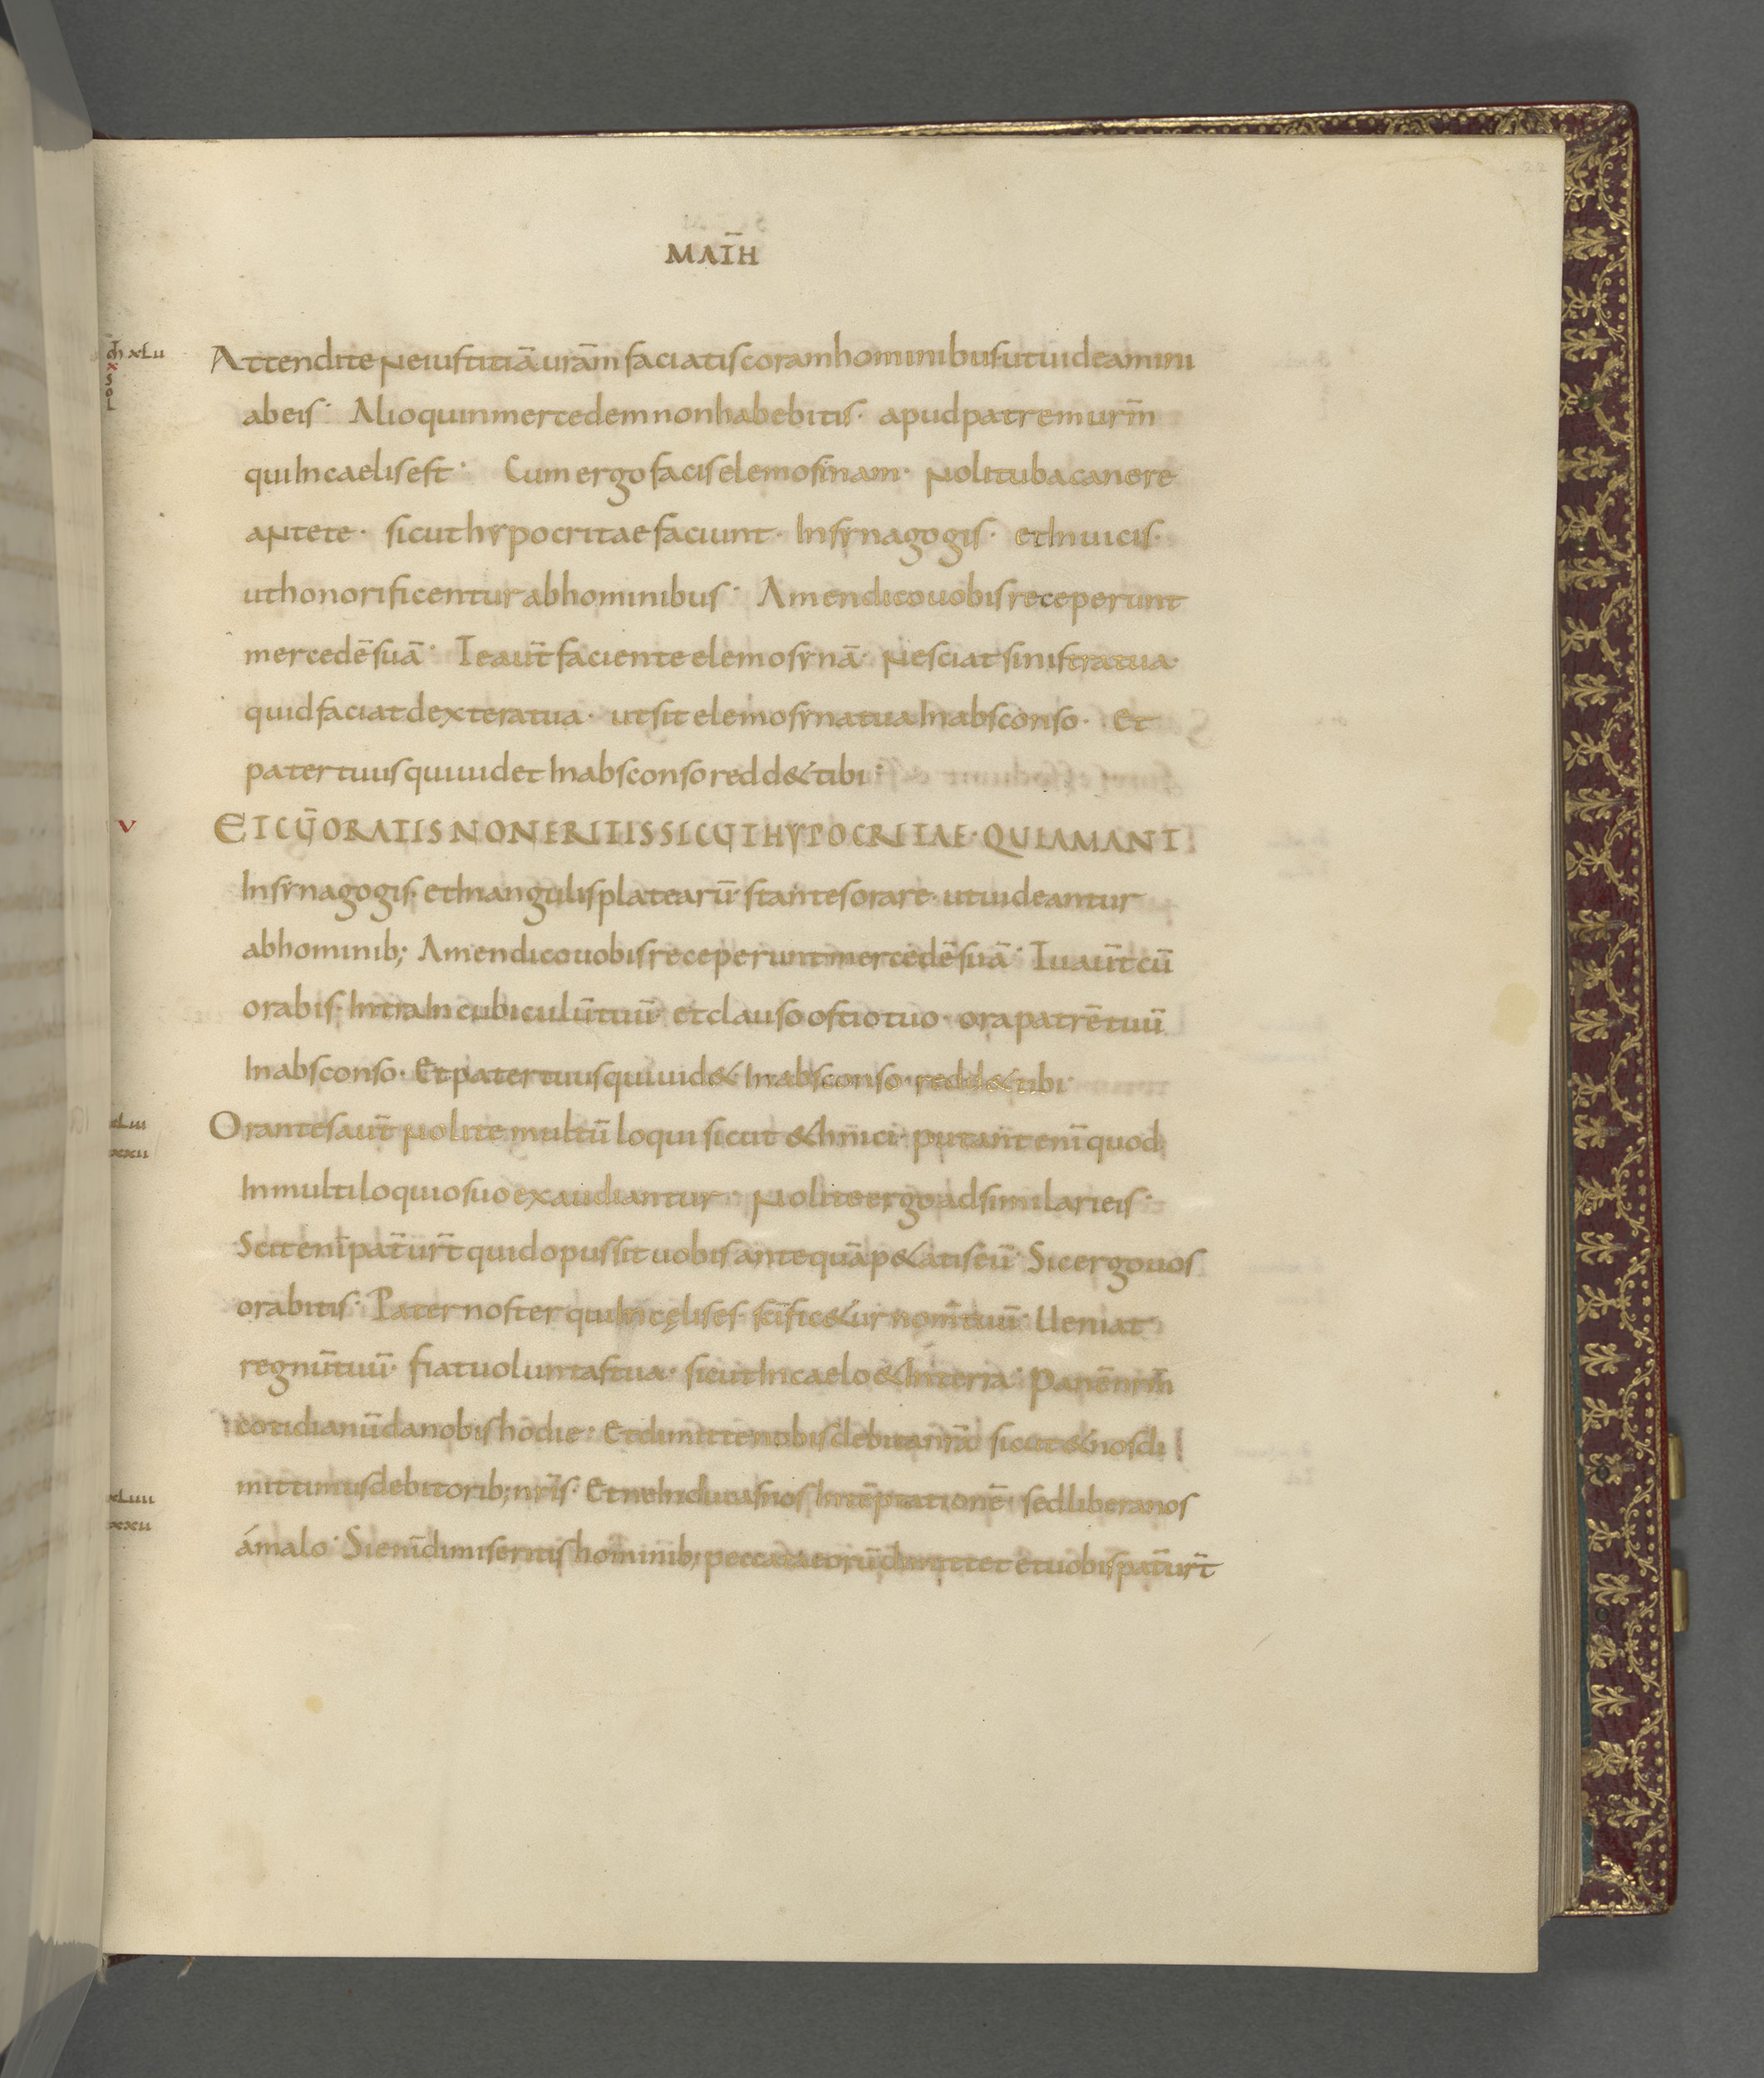 MAT̄H
m̄ xLu
x
SOL
Attendite ne iustitiā urām faciatis coram hominibus ut uideamini
ab eis · Alioquin mercedem non habebitis · apud patrem urm̄
qui in caelis est · Cum ergo facis elemosinam · Noli tuba canere
ante te · sicut hypocritae faciunt · In synagogis · et In uicis ·
ut honorificentur ab hominibus · Amen dico uobis receperunt
mercedē suā · Te aut̄ faciente elemosynā · Nesciat sinistra tua ·
quid faciat dextera tua · ut sit elemosyna tua In absconso · Et
pater tuus qui uidet In absconso redd& tibi ·
V
ET CŪ ORATIS NON ERITIS SICUT HYPOCRITAE · QUI AMANT
In synagogis · et In angulis platearū · stantes orare · ut uideantur
ab hominib; Amen dico uobis receperunt mercedē suā · Tu aut̄ cū
orabis · Intra In cubiculū tuū · et clauso ostio tuo · ora patrē tuū
In absconso · Et pater tuus qui uid& In absconso · redd& tibi ·
xLiii
xxii
Orantes aut̄ Nolite multū loqui sicut &hnici · putant eni quod
In multiloquio suo exaudiantur · Nolite ergo adsimilari eis ·
Scit eni pat̄ ur̄t quid opus sit uobis antequā p&atis eū · Sic ergo uos
orabitis · Pater noster qui In cęlis es · sc̄ific&ur nom̄ tuū · Ueniat
regnū tuū · fiat uoluntas tua · sicut In caelo & In terra · Panē nrm̄
cotidianū da nobis hodie · Et dimitte nobis debita nr̄a sicut & nos di
xLiiii
xxii
mittimus debitorib; nr̄is · Et ne Inducas nos In tēptationē · sed libera nos
á malo · Si enī dimiseritis hominib; peccata eorū dimittet et uobis pat̄ ur̄t